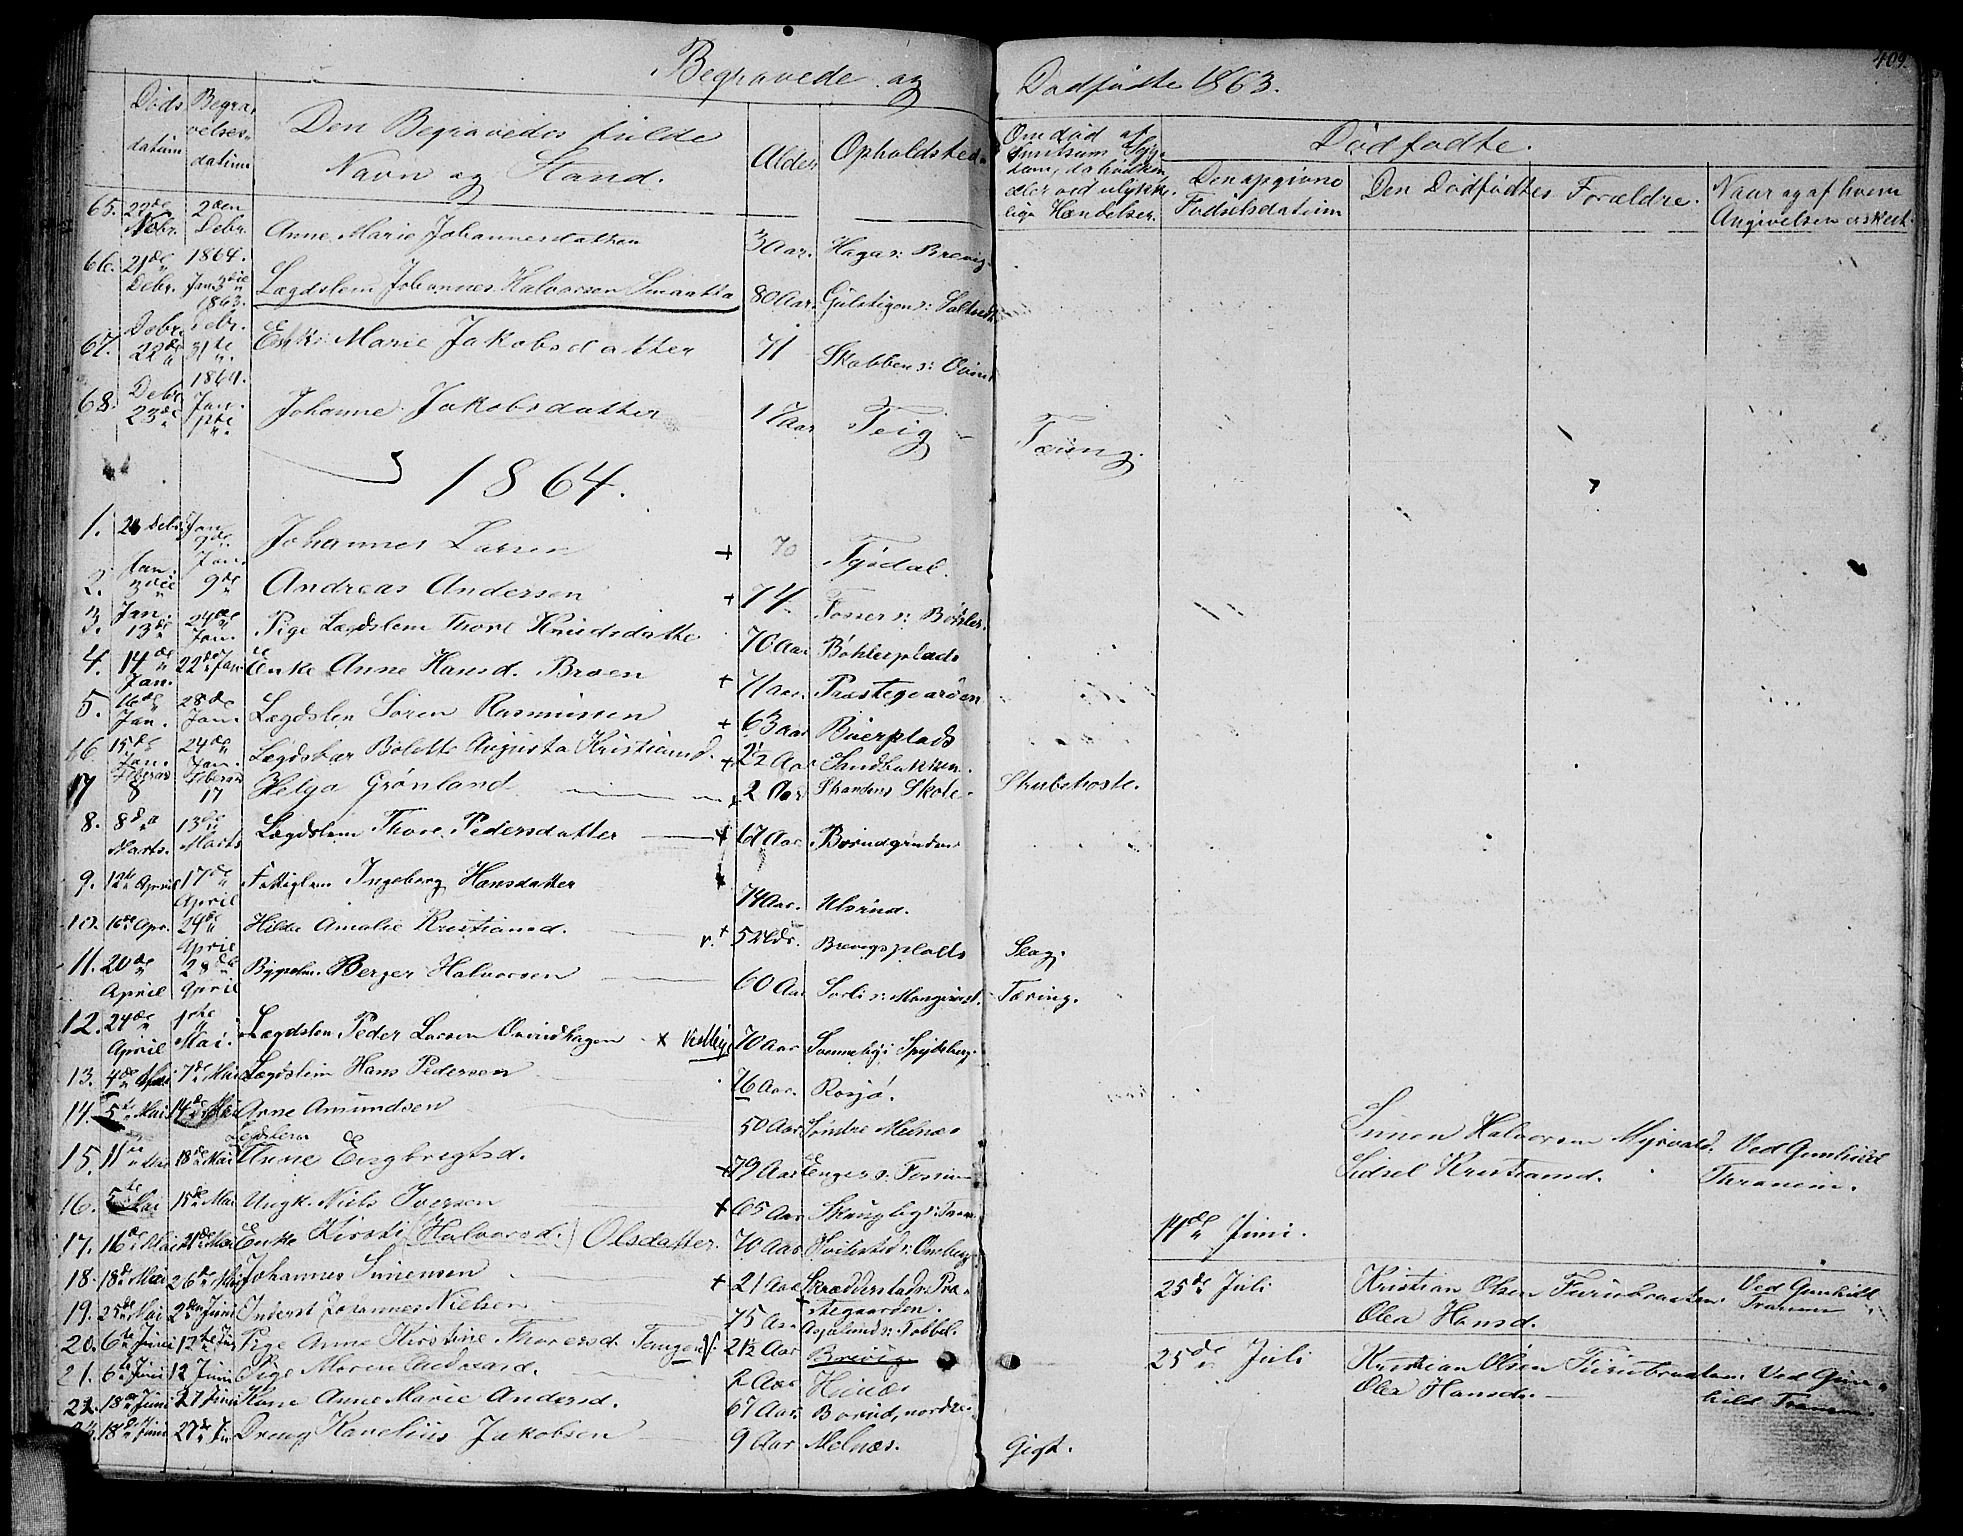 Begravede og Dødfødte 1863.
409.
Døds datum
Begravelses datum
Den Begravedes fulde Navn og Stand.
Alder
Opholdsted
Om død af
Dødfødte.
Den opgivne Fødselsdatum
Den Dødfødtes Forældre.
Naar og af hvem Angivelsen er skeet.
65. 22de Nobr. 2den Debr. Anne Marie Johannesdatter 3 Aar. Haga s: Brevig
66. 21de Debr. 1864. Jan. 3die Lægdslem Johannes Halvorsen 80 Aar.
1863.
67. Debr. 22de Debr. 31te Enke Marie Jakobsdatter 71 Skabben s:
68. Debr. 23de 1864. Jan. 1ste Johanne Jakobsdatter 17 Aar Teig Tæring.
1864.
1. Debr. Jan. 9de Johannes Larsen + 70 Tysdal.
2. Jan. 3die Jan. 9de Andreas Andersen + 74 Fosser s: Bøhler.
3. Jan. 13de 24de Jan. Pige Lægdslem Thore Knudsdatter 70 Aar Bøhlerplads
4. 14de Jan. 22de Jan Enke Anne Hansd. Braen + 71 Aar. Præstegaarden
5. 16de Jan. 28de Jan. Lægdslem Søren Rasmussen + 63 Aar Buerplads
6 15de Jan. 24de Jan. Lægdsbar Bolette Augusta Kristiansd. + 2 1/2 Aar Sandbakken.
7 Februar 8 Februar 17 Helga Grønland 2 Aar Strandens Skole Strubehoste.
8. 8de Marts. 13de Marts Lægdslem Thore Pedersdatter + 67 Aar.
9. 12te April 17de April Fattiglem Ingeborg Hansdatter 74 Aar. Ulsrud.
10. 16de Apr. 24de April Hilda Amalie Kristiansd. v. + 5 Uldr. Brevigsplads Slag.
11. 20de April 28de April Berger Halvorsen 60 Aar Tæring.
12. 24de April 1ste Mai. Lægdslem Peder Larsen + Vestby 70 Aar Spydeberg.
13. 4de Mai 7de Mai Lægdslem Hans Pedersen 76 Aar. Rosjø.
14. 5te Mai 14de Mai Arne Amundsen 50 Aar Søndre Melnæs
15. 11te Mai 18de Mai Lægdslem Anne Engbrigtsd. + 79 Aar Enger s:
16. 5te Mai 15de Mai Ungk. Niels Iversen + 65 Aar
17. 16de Mai 21de Mai Enke Kirsti (Halvorsd.) Olsdatter. 70 Aar
18. 18de Mai 26de Mai Johannes Simensen + 21 Aar Skrædderstad s: Præstegaarden.
19. 25de Mai 2den Juni Inderst Johannes Nielsen 75 Aar
20. 6te Juni 12te Juni Pige Anne Kirstine Thoresd. Tangen 21 1/2 Aar Brevig
21. 6te Juni 12 Juni Pige Maren 2 Aar
22. 18de Juni 27 Juni Kone Anne Marie Andersd. 67 Aar Borud, nordre
18de Juni 27de Juni Dreng Kornelius Jakobsen 9 Aar Melnæs. Gigt.
Simen Halvorsen Myrvold. Ved Gunhild
Sidsel Kristiansd. Thranem.
14de Juni.
25de Juli Kristian Olsen Furubraaten. Ved Gunhild
Olea Hansd. Tranem
25de Juli Kristian Olsen Furubraaten. Ved Gun-
Olea Hansd. hild Tranem.